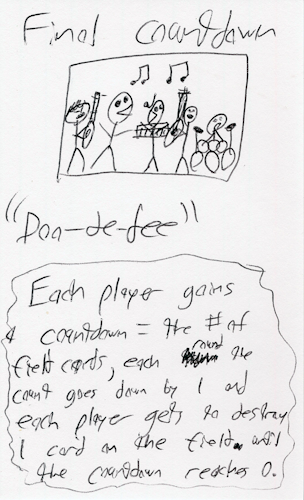 Final Countdown
"Doo-de-fee"
Each player gains
a countdown = the # of
field cards, each round the
count goes down by 1 and
each player gets to destroy
1 card on the field until
the countdown reaches 0.